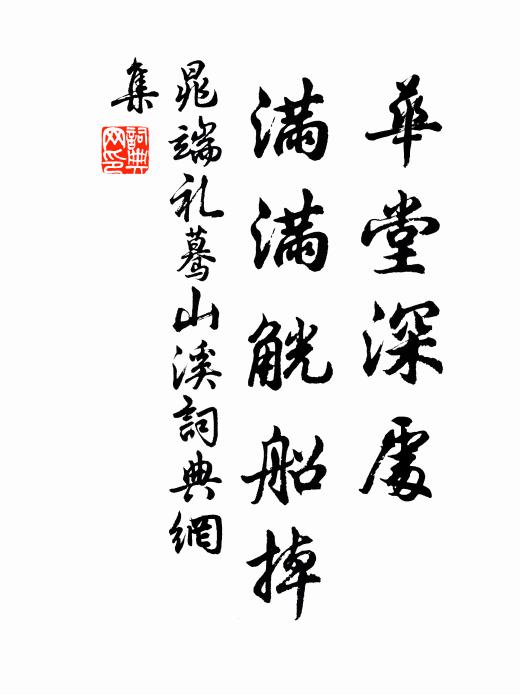 華堂深處
滿滿觥船掉
晁端礼驀山溪詞典網
集
詞典网印